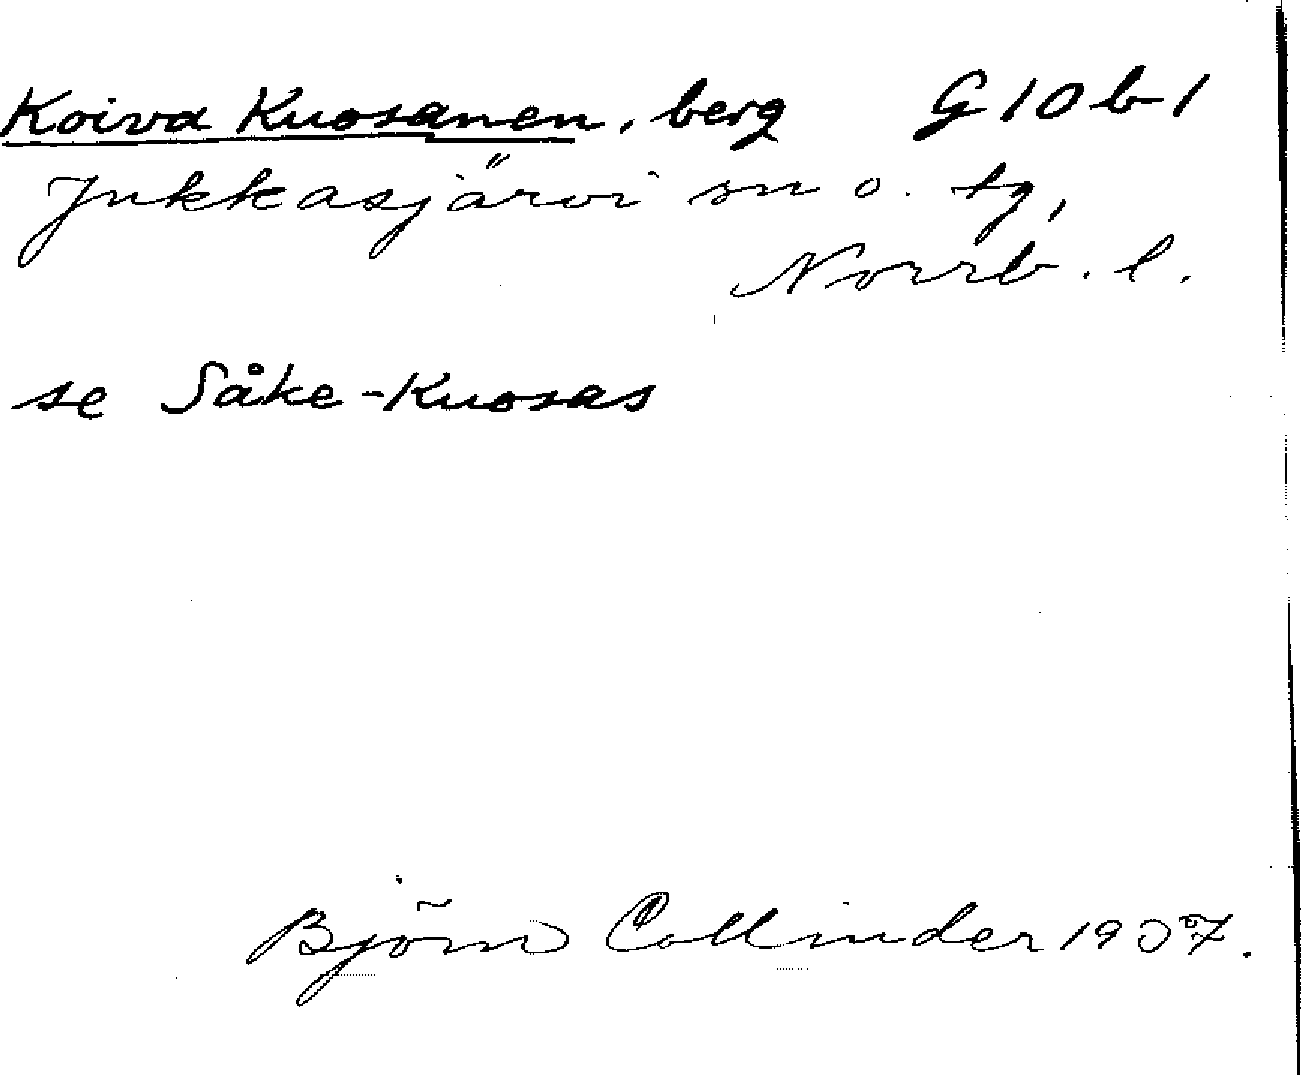 Koiva Kuosanen, berg G10b1
Jukkasjärvi sn o. tg,
Norrb. l.
se Såke-Kuosas
Björn Collinder 1907.